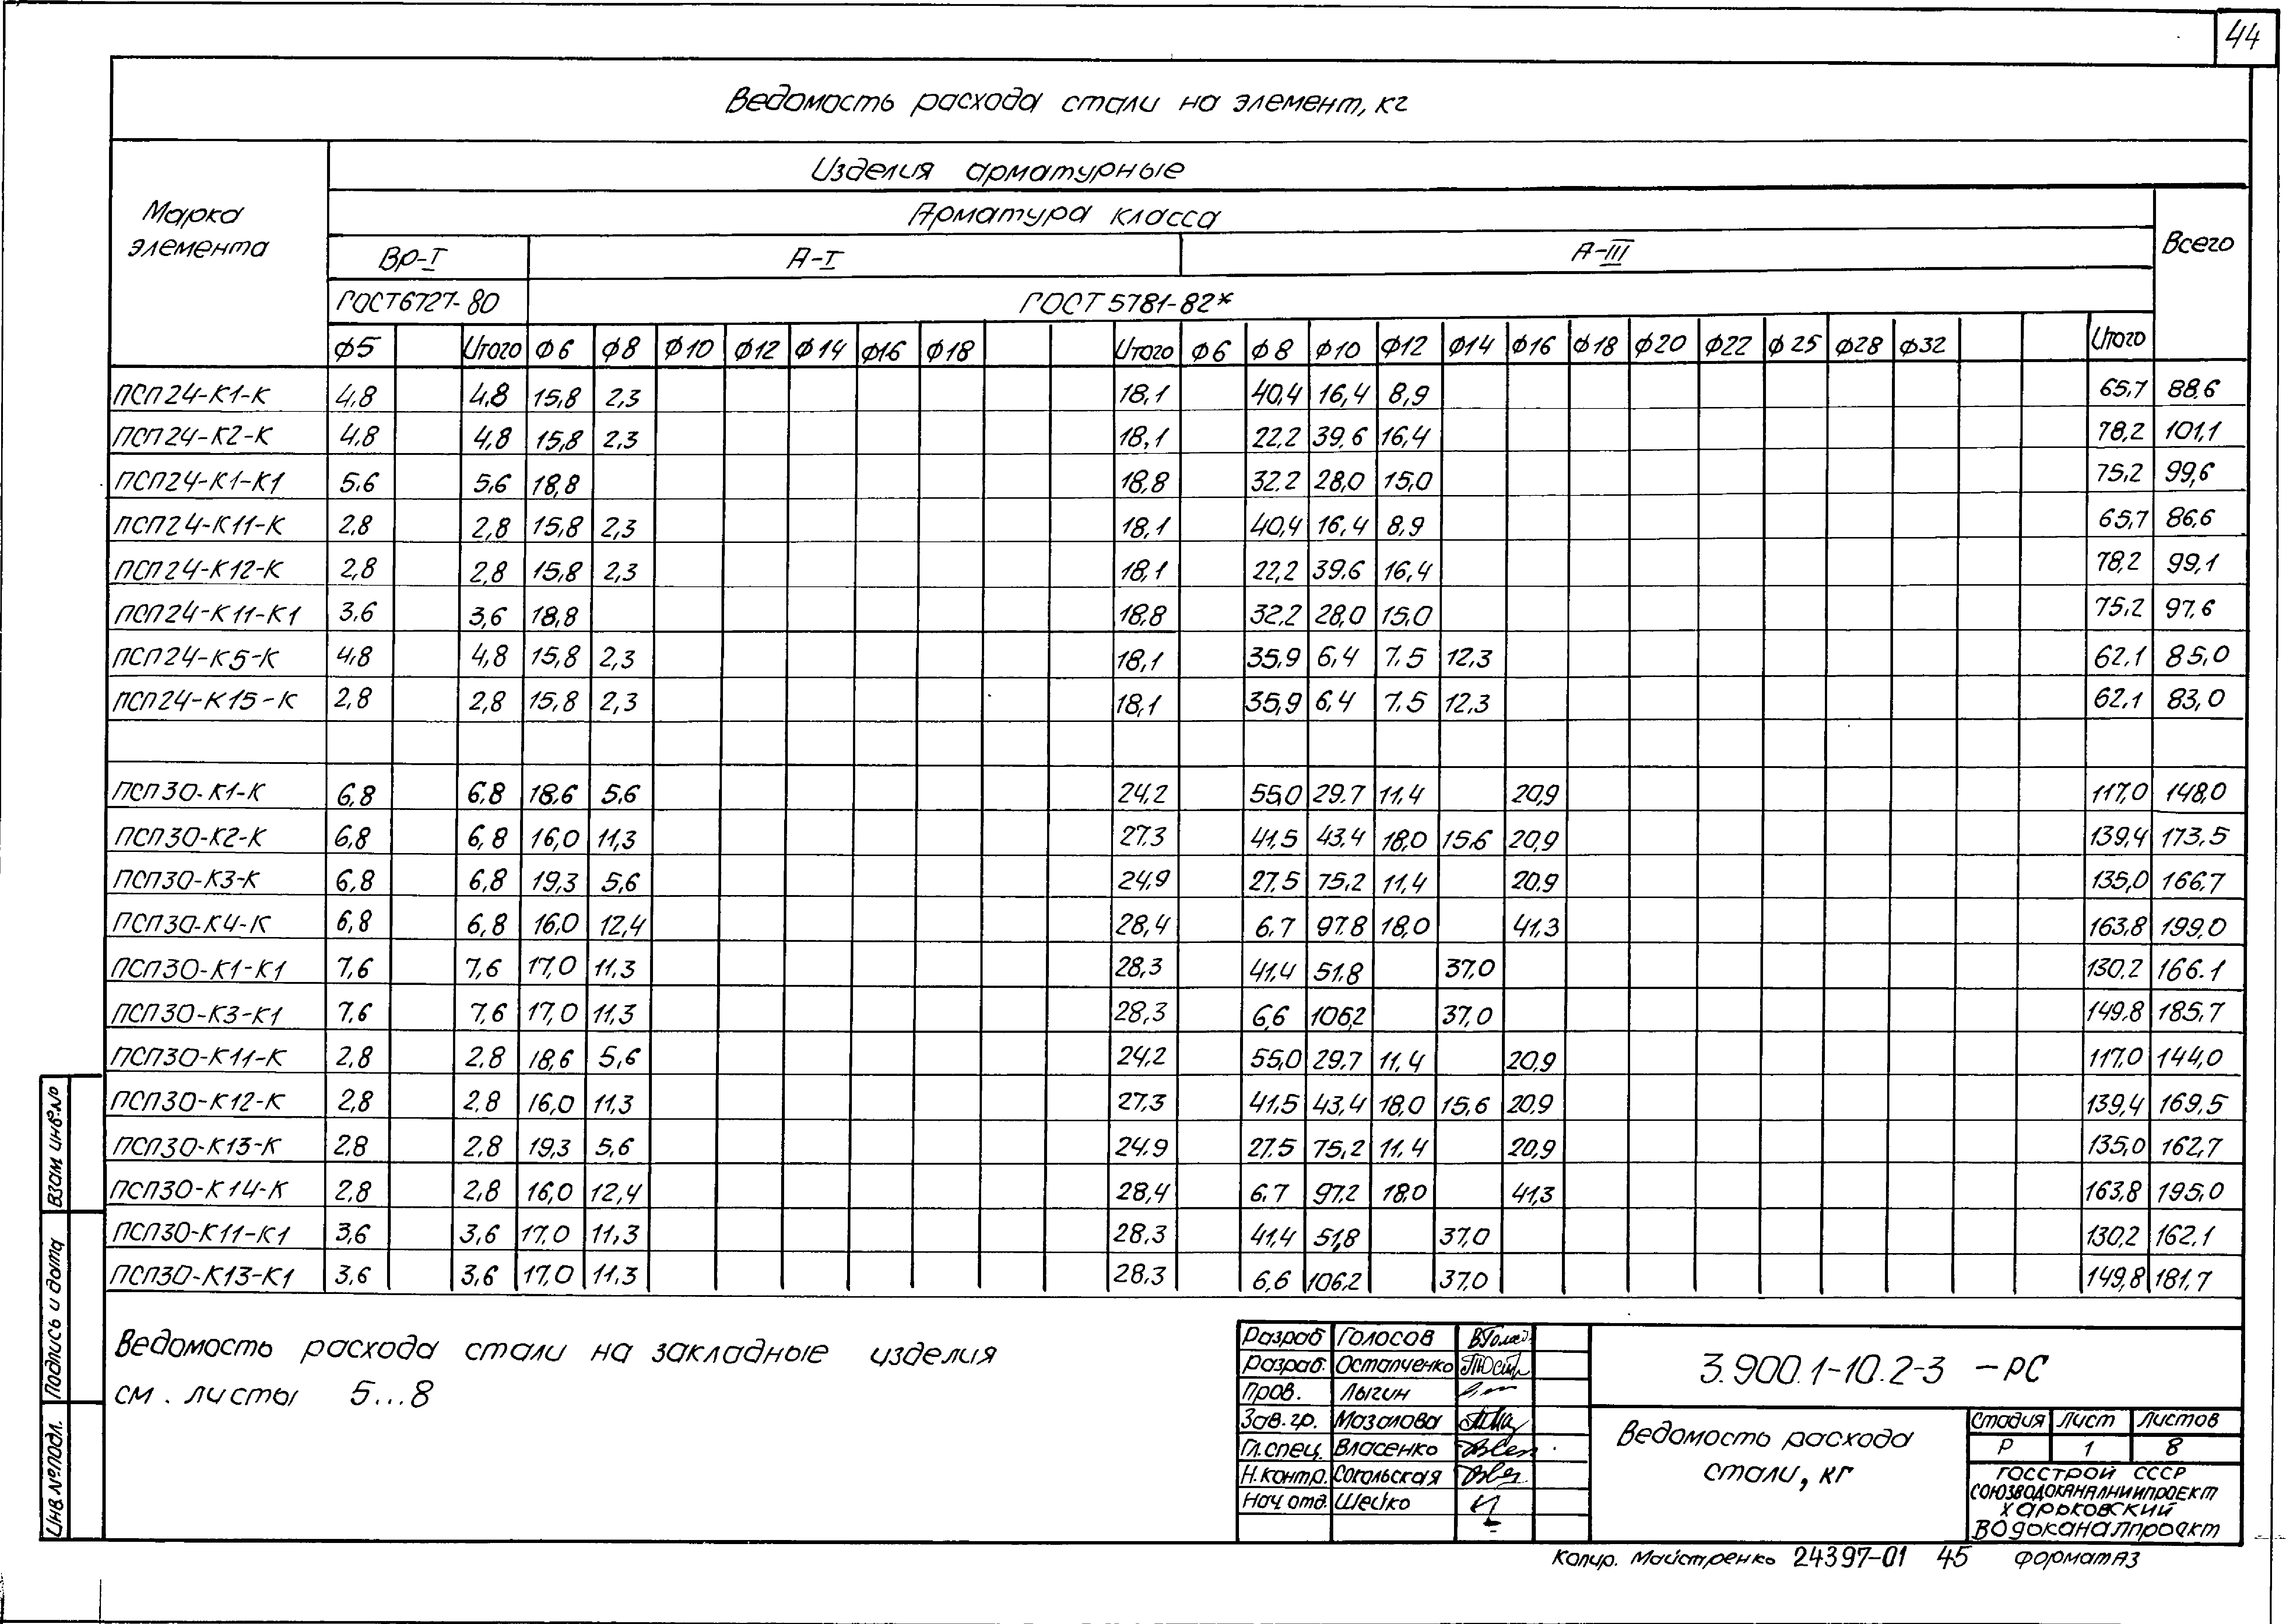 44
Ведомость расхода стали на элемент, кг
Марка элемента
Изделия арматурные
Всего
Арматура класса
Вр-I А-I А-III
ГОСТ 6727-80 ГОСТ 5781-82*
Ф5 Итого Ф6 Ф8 Ф10 Ф12 Ф14 Ф16 Ф18 Итого Ф6 Ф8 Ф10 Ф12 Ф14 Ф16 Ф18 Ф20 Ф22 Ф25 Ф28 Ф32 Итого
ПСП24-К1-К 4,8 4,8 15,8 2,3 18,1 40,4 16,4 8,9 65,7 88.6
ПСП24-К2-К 4,8 4,8 15,8 2,3 18,1 22,2 39,6 16,4 78,2 101,1
ПСП24-К1-К1 5,6 5,6 18,8 18,8 32,2 28,0 15,0 75,2 99,6
ПСП24-К11-К 2,8 2,8 15,8 2,3 18,1 40,4 16,4 8,9 65,7 86,6
ПСП24-К12-К 2,8 2,8 15,8 2,3 18,1 22,2 39,6 16,4 78,2 99,1
ПСП24-К11-К1 3,6 3,6 18,8 18,8 32,2 28,0 15,0 75,2 97,6
ПСП24-К5-К 4,8 4,8 15,8 2,3 18,1 35,9 6,4 7,5 12,3 62,1 85,0
ПСП24-К15-К 2,8 2,8 15,8 2,3 18,1 35,9 6,4 7,5 12,3 62,1 83,0
ПСП30-К1-К 6,8 6,8 18,6 5,6 24,2 55,0 29,7 11,4 20,9 117,0 148,0
ПСП30-К2-К 6,8 6,8 16,0 11,3 27,3 41,5 43,4 18,0 15,6 20,9 139,4 173,5
ПСП30-К3-К 6,8 6,8 19,3 5,6 24,9 27,5 75,2 11,4 20,9 135,0 166,7
ПСП30-К4-К 6,8 6,8 16,0 12,4 28,4 6,7 97,8 18,0 41,3 163,8 199,0
ПСП30-К1-К1 7,6 7,6 17,0 11,3 28,3 41,4 51,8 37,0 130,2 166.1
ПСП30-К3-К1 7,6 7,6 17,0 11,3 28,3 6,6 106,2 37,0 149,8 185,7
ПСП30-К11-К 2,8 2,8 18,6 5,6 24,2 55,0 29,7 11,4 20,9 117,0 144,0
ПСП30-К12-К 2,8 2,8 16,0 11,3 27,3 41,5 43,4 18,0 15,6 20,9 139,4 169,5
ПСП30-К13-К 2,8 2,8 19,3 5,6 24,9 27,5 75,2 11,4 20,9 135,0 162,7
ПСП30-К14-К 2,8 2,8 16,0 12,4 28,4 6,7 97,2 18,0 41,3 163,8 195,0
ПСП30-К11-К1 3,6 3,6 17,0 11,3 28,3 41,4 51,8 37,0 130,2 162,1
ПСП30-К13-К1 3,6 3,6 17,0 11,3 28,3 6,6 106,2 37,0 149,8 181,7
Ведомость расхода стали на закладные изделия
см. листы 5...8
Взам. инв. №
Подпись и дата
Инв. № подл.
Разраб Голосов
Разраб. Остапченко
Пров. Лыгин
Зав. гр. Мазалова
Гл. спец. Власенко
Н. контр. Согольская
Нач. отд. Шейко
3.900.1-10.2-3 -РС
Ведомость расхода
стали, кг
Стадия Лист Листов
Р 1 8
ГОССТРОЙ СССР
СОЮЗВОДОКАНАЛНИИПРОЕКТ
ХАРЬКОВСКИЙ
ВОДОКАНАЛПРОЕКТ
Копир. Майстренко 24397-01 45 формат А3